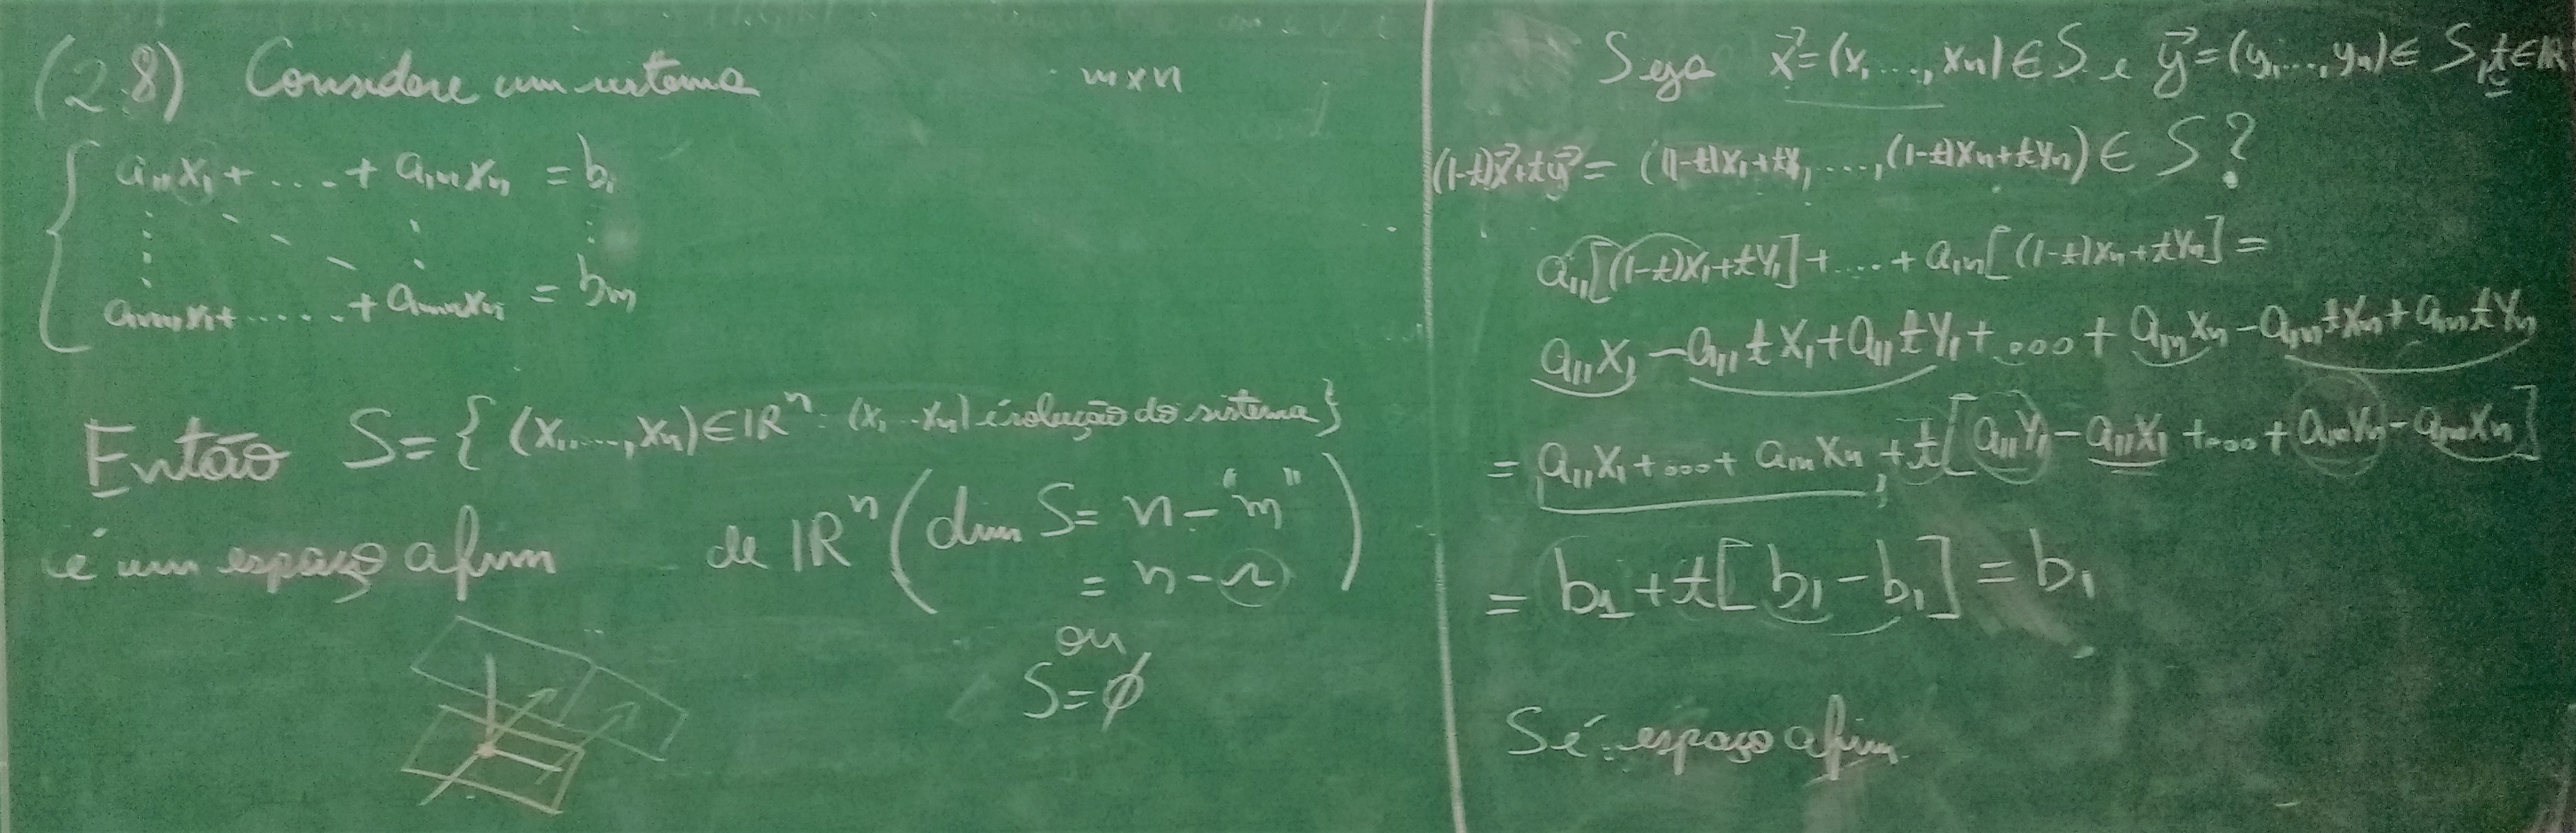 (2.8) Considere um sistema m×n
a₁₁x₁ + .... + a₁ₙxₙ = b₁
aₘ₁x₁ + ...... + aₘₙxₙ = bₘ
Então S = { (x₁, ...., xₙ) ∈ ℝⁿ : (x₁ ... xₙ) é solução do sistema }
é um espaço afim de ℝⁿ ( dim S = n - "m"
= n - r )
ou
S = ∅
Seja x⃗ = (x₁ ...., xₙ) ∈ S e y⃗ = (y₁ ..., yₙ) ∈ S, t ∈ ℝ
(1-t)x⃗ + ty⃗ = ((1-t)x₁ + ty₁, ...., (1-t)xₙ + tyₙ) ∈ S?
a₁₁[(1-t)x₁ + ty₁] + ... + a₁ₙ[(1-t)xₙ + tyₙ] =
a₁₁x₁ - a₁₁tx₁ + a₁₁ty₁ + ... + a₁ₙxₙ - a₁ₙtxₙ + a₁ₙtyₙ
= a₁₁x₁ + ... + a₁ₙxₙ + t[a₁₁y₁ - a₁₁x₁ + ... + a₁ₙyₙ - a₁ₙxₙ]
= b₁ + t[b₁ - b₁] = b₁
S é espaço afim